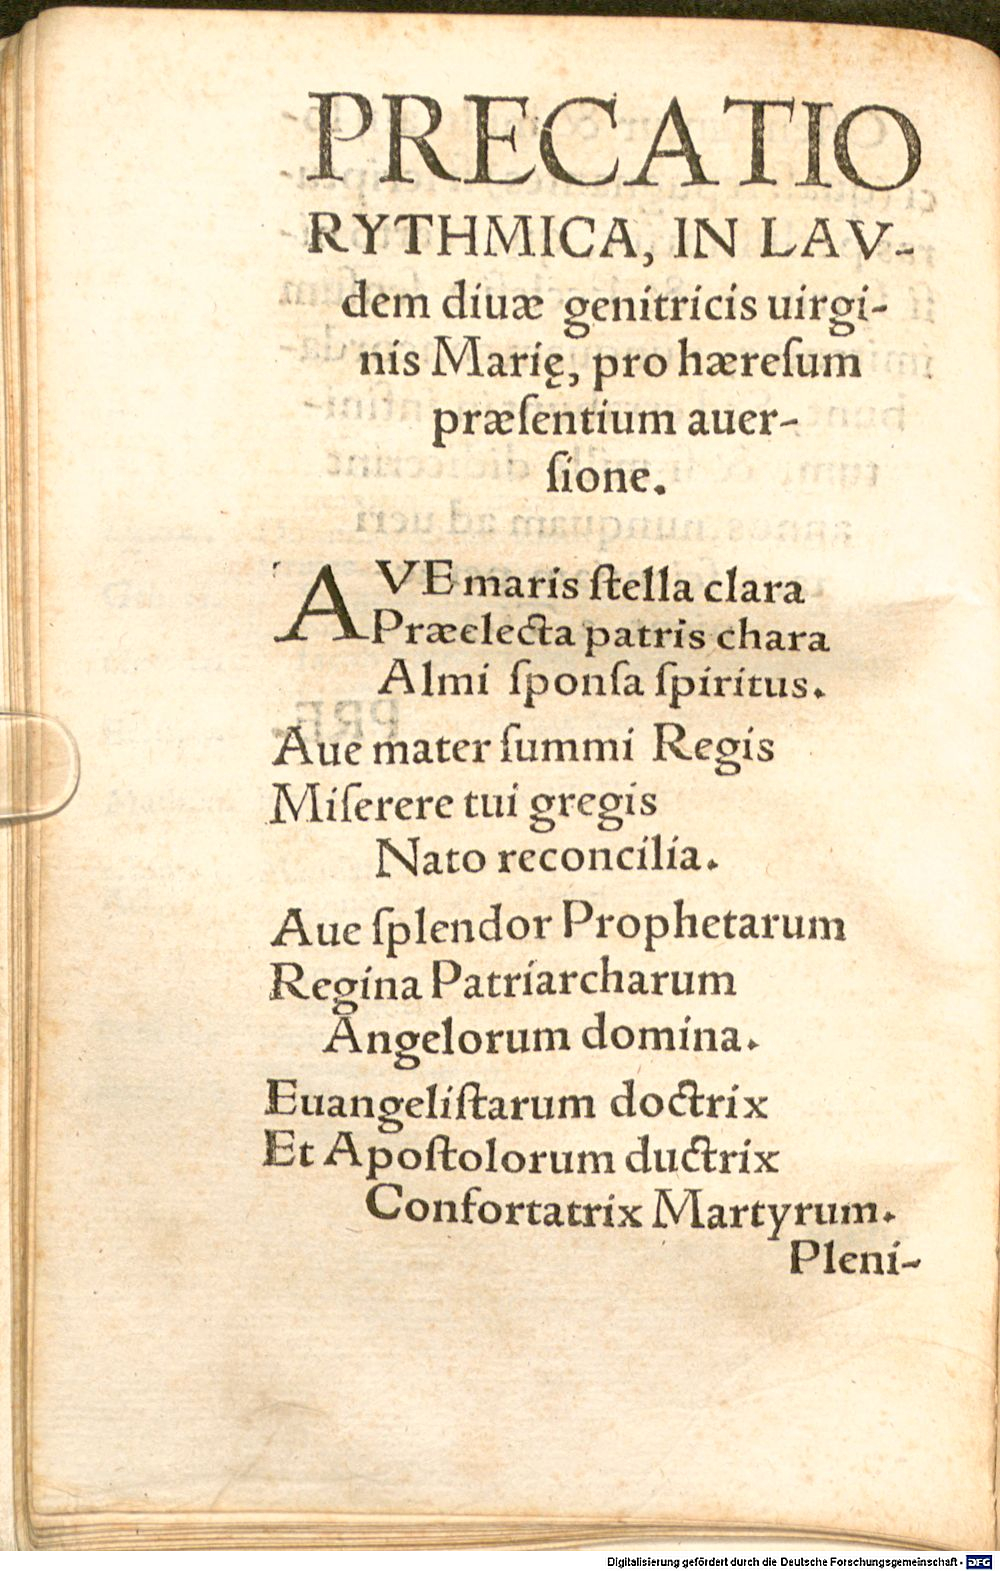 PRECATIO
RYTHMICA, IN LAV-
dem diuæ genitricis uirgi-
nis Marię, pro hæreſum
præſentium auer-
ſione.
AVE maris ſtella clara
Præelecta patris chara
Almi ſponſa ſpiritus.
Aue mater ſummi Regis
Miſerere tui gregis
Nato reconcilia.
Aue ſplendor Prophetarum
Regina Patriarcharum
Angelorum domina.
Euangeliſtarum doctrix
Et Apoſtolorum ductrix
Confortatrix Martyrum.
Pleni-
Digitalisierung gefördert durch die Deutsche Forschungsgemeinschaft - DFG